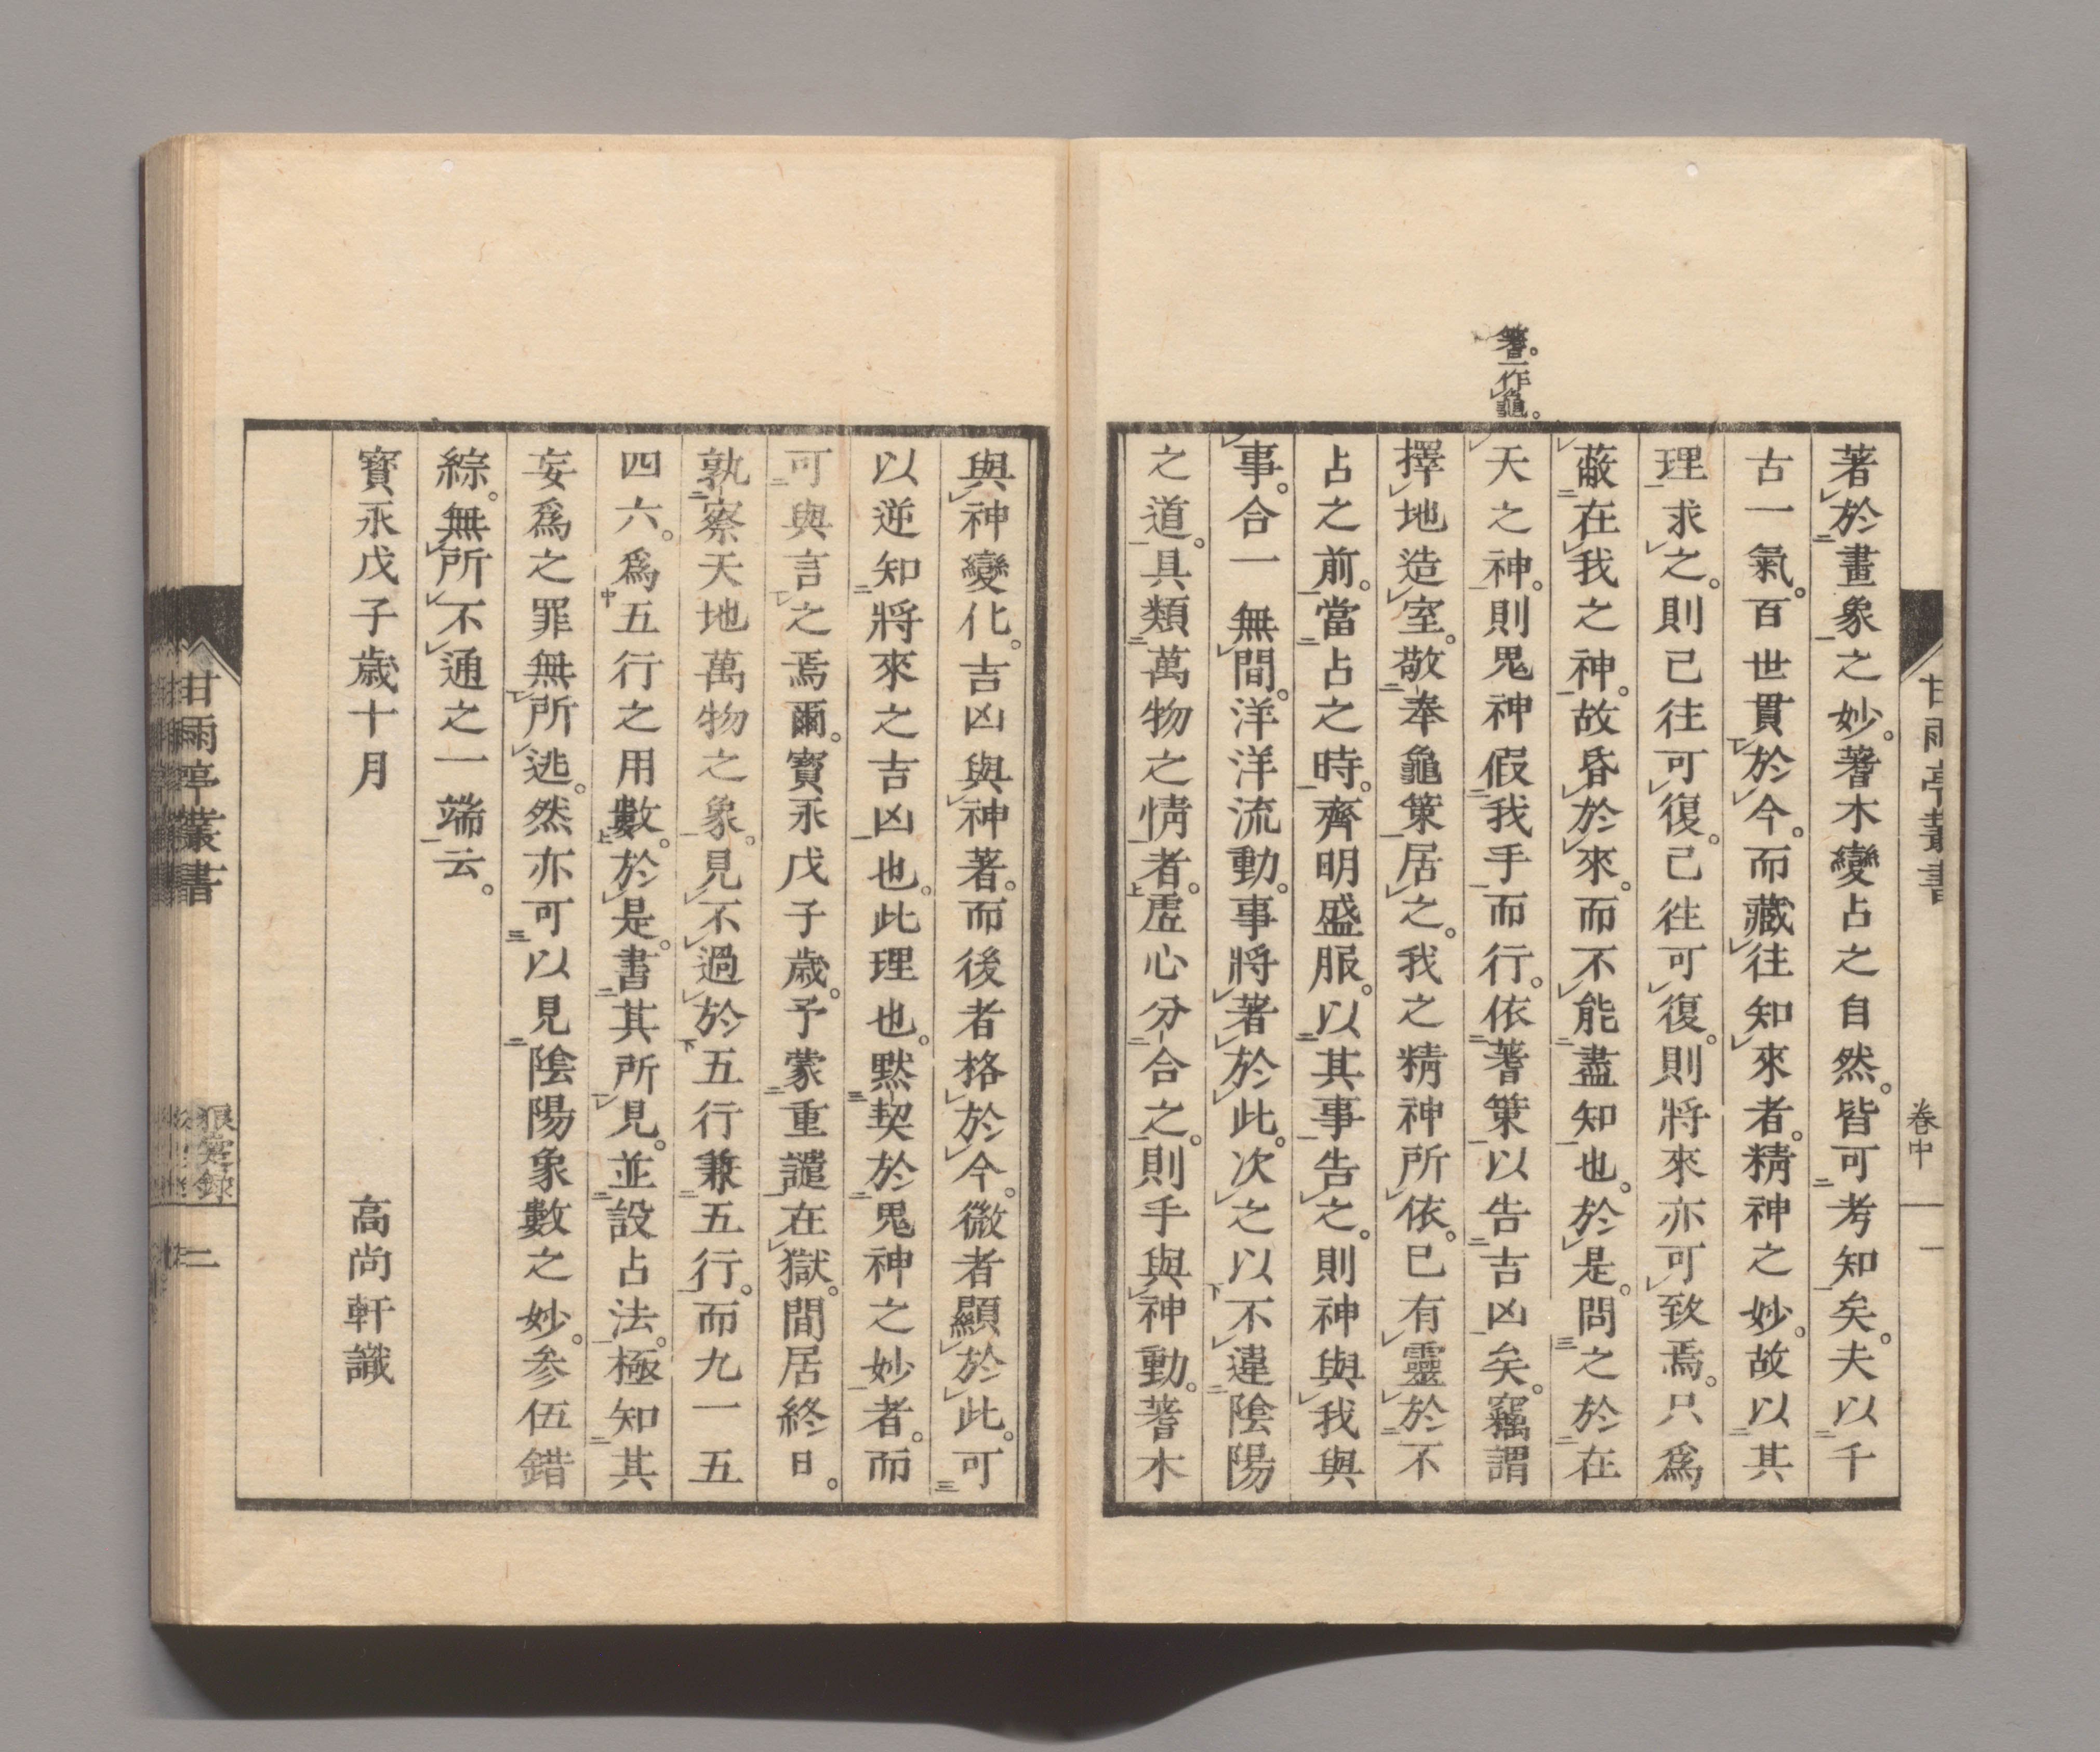 蓍一作龜。
著於畫象之妙。蓍木變占之自然。皆可考知矣。夫以千
古一氣。百世貫於今。而藏往知來者。精神之妙。故以其
理求之。則已往可復。已徃可復。則將來亦可致焉。只爲
蔽在我之神。故昏於來。而不能盡知也。於是。問之於在
天之神。則鬼神假我手而行。依蓍筞以告吉凶矣。竊謂
擇地造室。敬奉龜筞居之。我之精神所依。已有靈於不
占之前。當占之時。齊明盛服。以其事告之。則神與我與
事。合一無間。洋洋流動。事將著於此。次之以不違陰陽
之道。具類萬物之情者。虛心分合之。則手與神動。蓍木
甘雨亭叢書
卷中
一
與神變化。吉凶與神著。而後者格於今。微者顯於此。可
以逆知將來之吉凶也。此理也。默契於鬼神之妙者。而
可與言之焉爾。寶永戊子歲。予蒙重譴在獄。間居終日。
孰察天地萬物之象。見不過於五行兼五行。而九一五
四六。爲五行之用數。於是。書其所見。並設占法。極知其
妄爲之罪無所逃。然亦可以見陰陽象數之妙。參伍錯
綜。無所不通之一端云。
寶永戊子歲十月
高尚軒識
甘雨亭叢書
狼疐錄
二